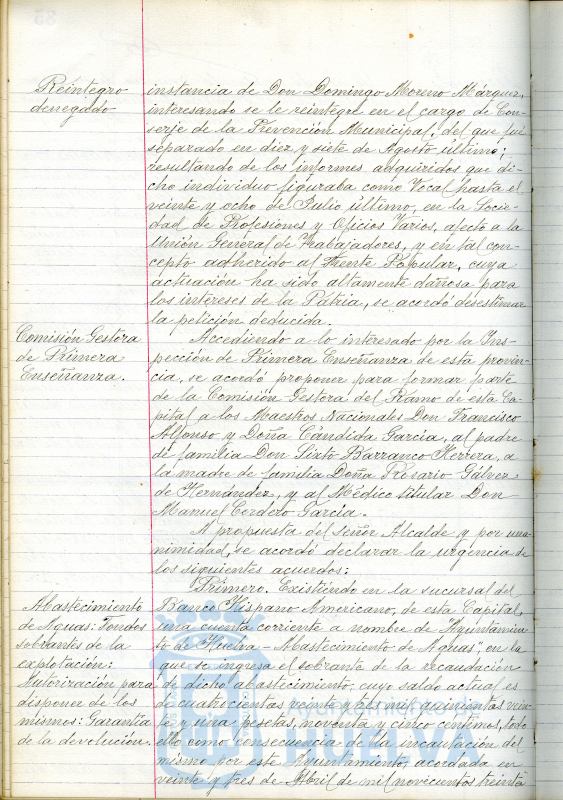 Reintegro
denegado
instancia de Don Domingo Moreno Márquez,
interesando se le reintegre en el cargo de Con-
serje de la Prevención Municipal, del que fué
separado en diez y siete de Agosto último;
resultando de los informes adquiridos que di-
cho individuo figuraba como Vocal hasta el
veinte y ocho de Julio último, en la Socie-
dad de Profesiones y Oficios Varios, afecto a la
Unión General de Trabajadores, y en tal con-
cepto adherido al Frente Popular, cuya
actuación ha sido altamente dañosa para
los intereses de la Pátria, se acordó desestimar
la petición deducida.
Comisión Gestora
de Primera
Enseñanza.
Accediendo a lo interesado por la Ins-
pección de Primera Enseñanza de esta provin-
cia, se acordó proponer para formar parte
de la Comisión Gestora del Ramo de esta Ca-
pital a los Maestros Nacionales Don Francisco
Alfonso y Doña Cándida García, al padre
de familia Don Sixto Barranco Herrera, a
la madre de familia Doña Rosario Gálvez
de Hernández, y al Médico titular Don
Manuel Cordero García.
A propuesta del Señor Alcalde y por una-
nimidad, se acordó declarar la urgencia de
los siguientes acuerdos:
Primero. Existiendo en la sucursal del
Abastecimiento
de Aguas: Fondos
sobrantes de la
explotación:
Autorización para
disponer de los
mismos: Garantía
de la devolución.
Banco Hispano Americano, de esta Capital,
una cuenta corriente a nombre de "Ayuntamien-
to de Huelva - Abastecimiento de Aguas", en la
que se ingresa el sobrante de la recaudación
de dicho abastecimiento, cuyo saldo actual es
de cuatrocientas veinte y tres mil quinientas vein-
te y una pesetas, noventa y cinco centimos, todo
ello como consecuencia de la incautación del
mismo por este Ayuntamiento, acordada en
veinte y tres de Abril de mil novecientos treinta